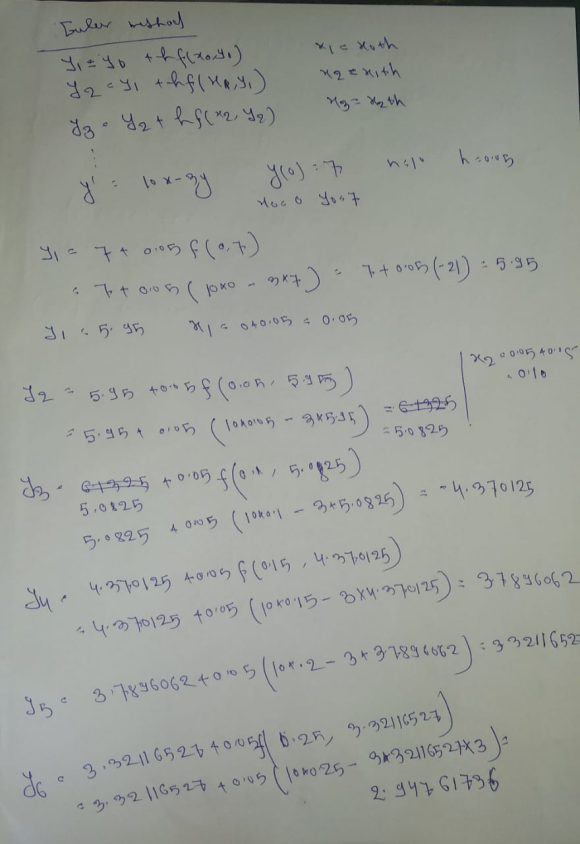 Euler method
y1 = y0 + hf(x0,y0) x1 = x0+h
y2 = y1 + hf(x1,y1) x2 = x1+h
y3 = y2 + hf(x2,y2) x3 = x2+h
⋮
y' = 10x-3y y(0) = 7, n=10 h=0.05
x0=0 y0=7
y1 = 7 + 0.05 f(0,7)
= 7 + 0.05 (10×0 - 3×7) = 7+0.05(-21) = 5.95
y1 = 5.95 x1 = 0+0.05 = 0.05
y2 = 5.95 + 0.05 f(0.05, 5.95) x2 = 0.05+0.05
= 0.10
= 5.95 + 0.05 (10×0.05 - 3×5.95) = 6.1325
= 5.0825
y3 = 6.1325 + 0.05 f(0.1, 5.0825)
5.0825
5.0825 + 0.05 (10×0.1 - 3+5.0825) = -4.370125
y4 = 4.370125 + 0.05 f(0.15, 4.370125)
= 4.370125 + 0.05 (10×0.15 - 3×4.370125) = 3.7896062
y5 = 3.7896062 + 0.05 (10×.2 - 3+3.7896062) = 3.3211652
y6 = 3.32116527 + 0.05f( 0.25, 3.32116527)
= 3.32116527 + 0.05 (10×0.25 - 3×32116527×3) =
2.94761736